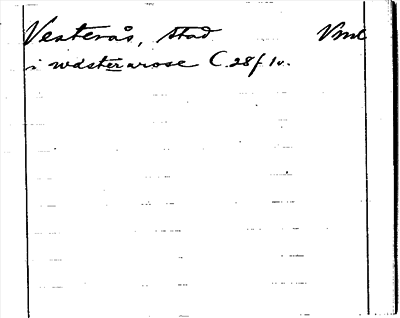 Vesterås, stad Vml
i wdsterarose C 28 f 1v.